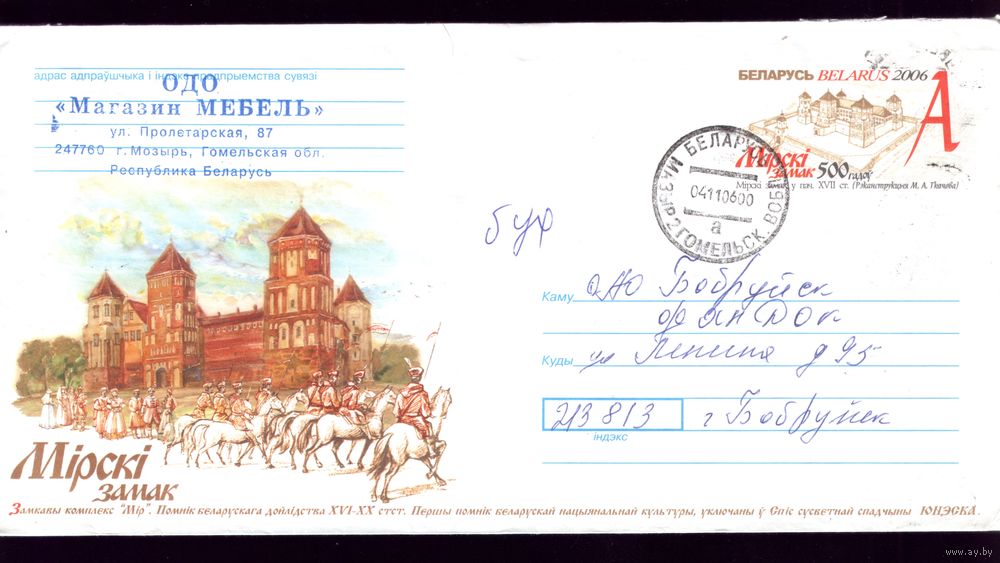 адрас адпраўшчыка і індэкс прадпрыемства сувязі
ОДО
«Магазин МЕБЕЛЬ»
ул. Пролетарская, 87
247760 г.Мозырь, Гомельская обл.
Республика Беларусь
БЕЛАРУСЬ BELARUS 2006
A
Мірскі
замак 500 гадоў
Мірскі замак у пач. XVII ст. (Рэканструкцыя М. А. Ткачова)
БЕЛАРУСЬ
МАЗЫР 2 ГОМЕЛЬСК. ВОБЛ.
04110600
а
бух
Каму ОАО Бобруйск
ФанДОк
Куды ул Ленина д 95
213813 г Бобруйск
індэкс
Мірскі
замак
Замкавы комплекс "Мір". Помнік беларускага дойлідства XVI-XX стст. Першы помнік беларускай нацыянальнай культуры, уключаны ў Спіс сусветнай спадчыны ЮНЭСКА.
www.ay.by